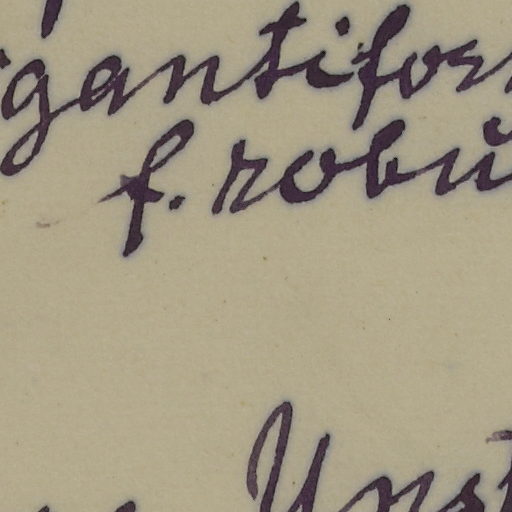 igantifor
f. robu
Unst